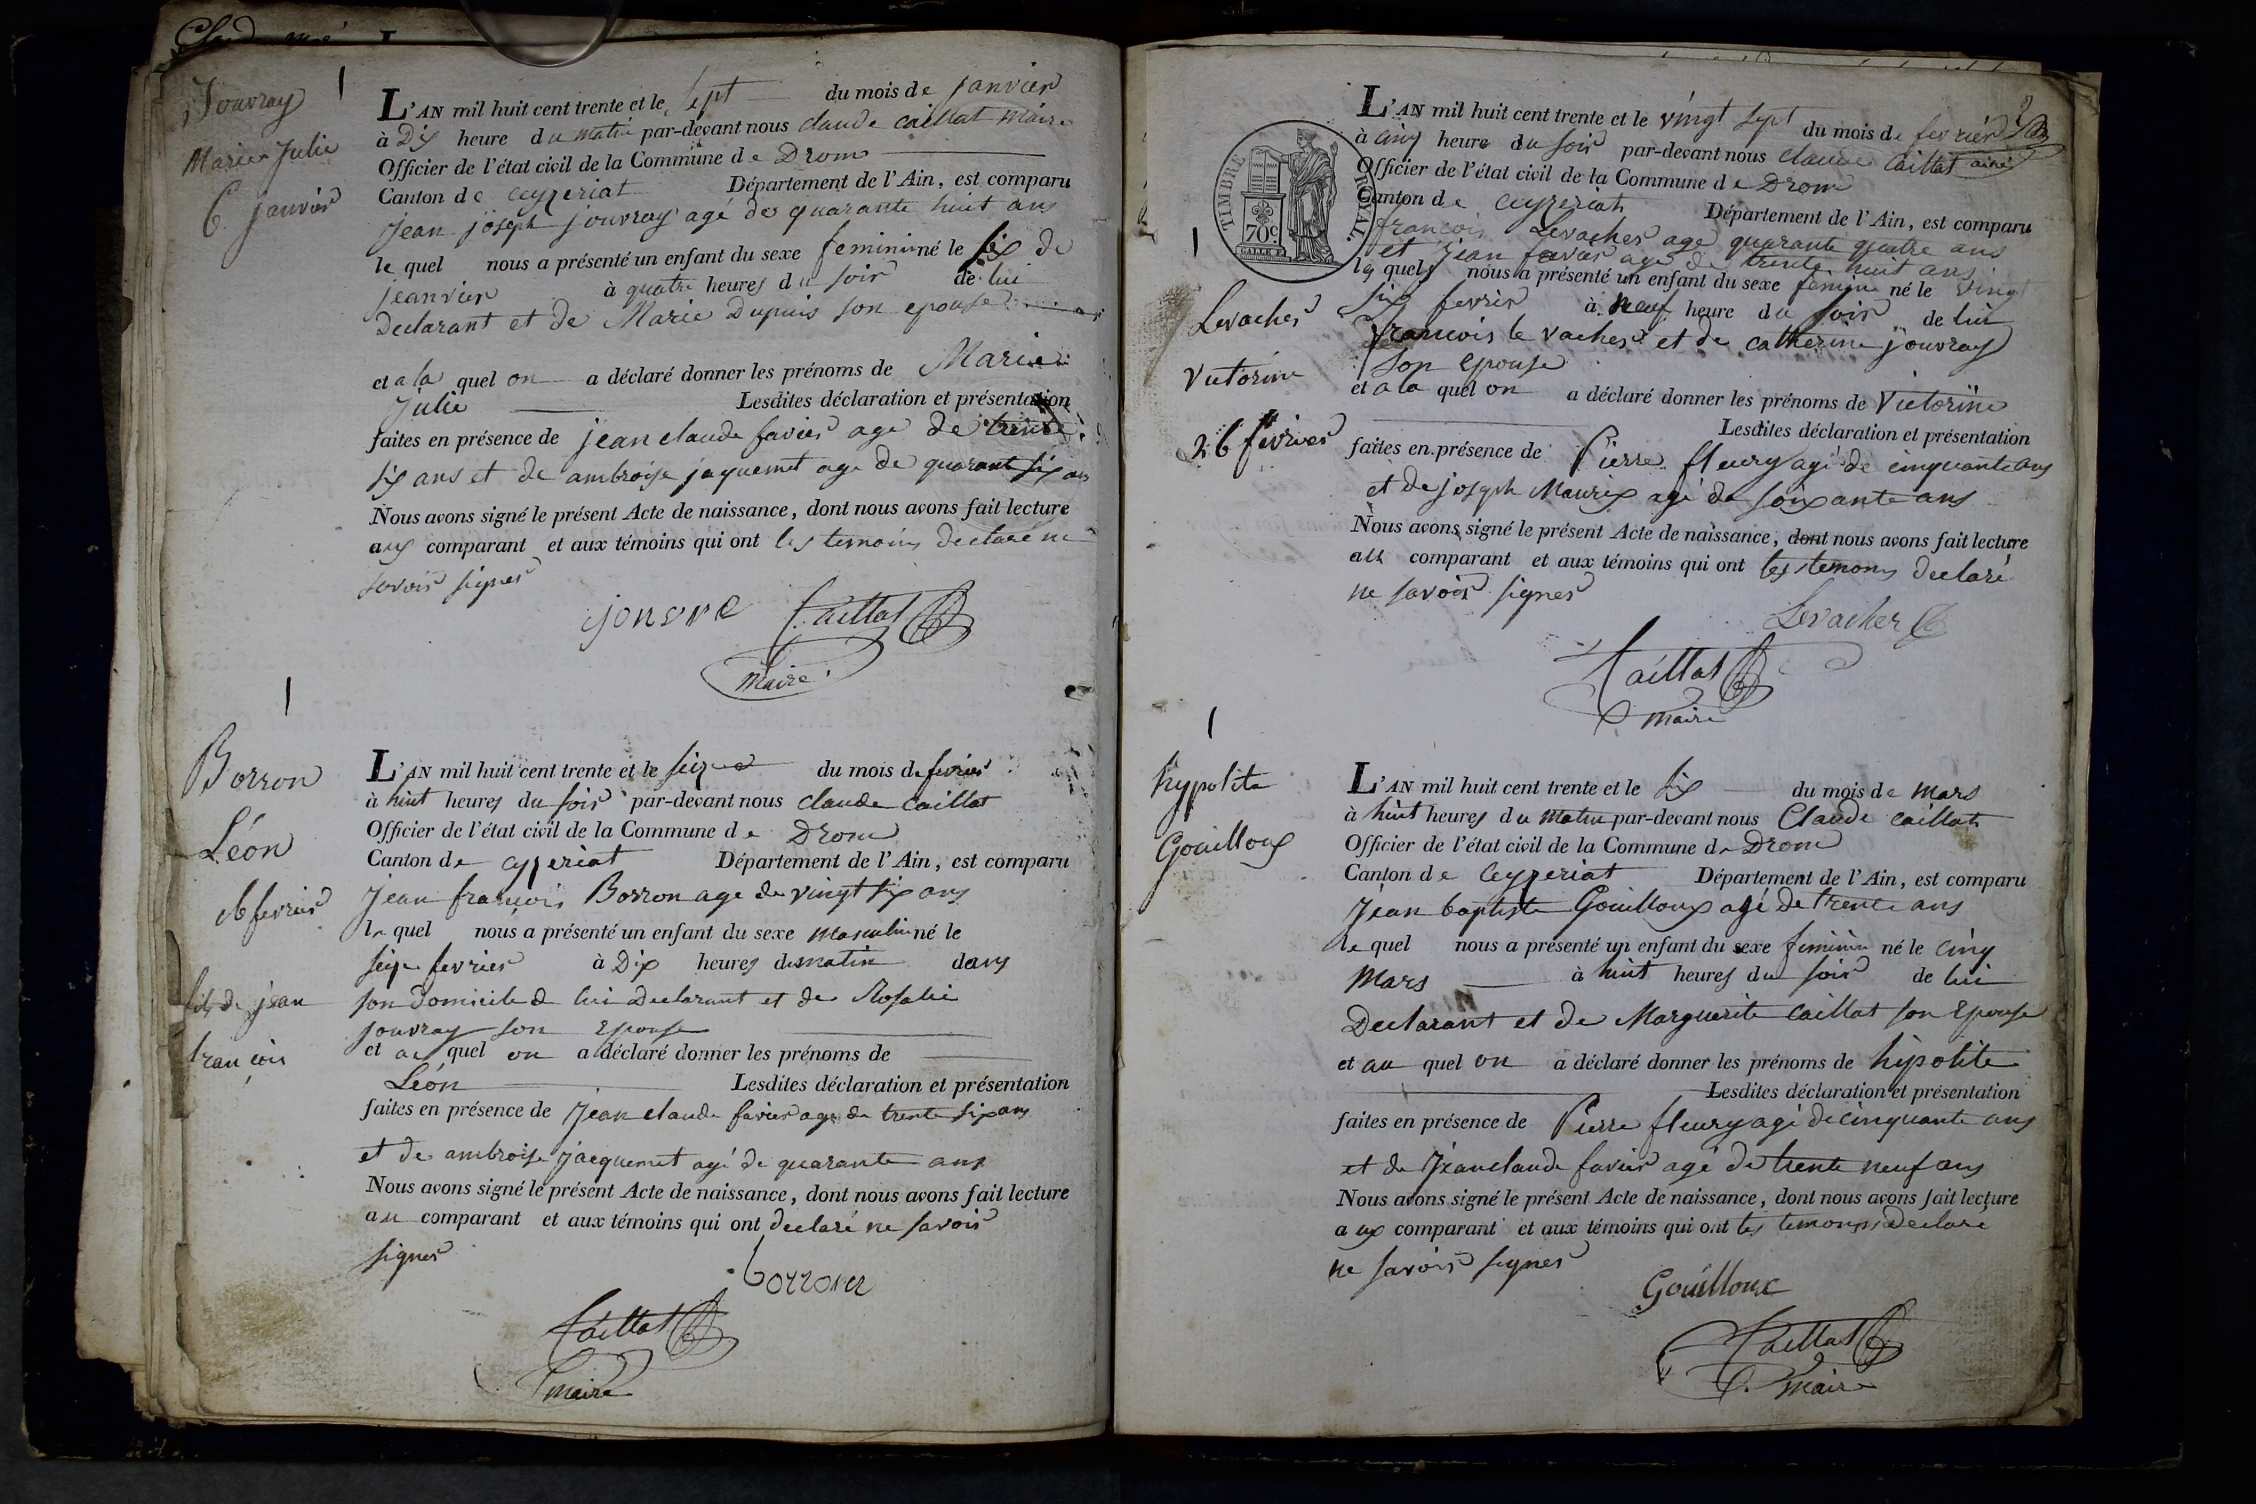 Jouvray
Marie Julie
6 janvier
L'AN mil huit cent trente et le sept du mois de janvier
à Dix heure du matin par-devant nous claude caillat maire
Officier de l'état civil de la Commune de Drom
Canton de ceyzeriat Département de l'Ain, est comparu
jean joseph jouvray agé de quarante huit ans
le quel nous a présenté un enfant du sexe feminin né le six de
jeanvier à quatre heures du soir de lui
declarant et de Marie Dupuis son epouse
et a la quel on a déclaré donner les prénoms de Marie
Julie Lesdites déclaration et présentation
faites en présence de jean claude favier age de trente
six ans et de ambroise jaquemet age de quarant six ans
Nous avons signé le présent Acte de naissance, dont nous avons fait lecture
aux comparant et aux témoins qui ont les temoins declaré ne
savoir signer
jouvre Caillat
Maire
Borron
Léon
16 fevrier
fils de jean
francois
L'AN mil huit cent trente et le seize du mois de fevrier
à huit heures du soir par-devant nous claude caillat
Officier de l'état civil de la Commune de Drom
Canton de cyzeriat Département de l'Ain, est comparu
Jean françois Borron age de vingt six ans
le quel nous a présenté un enfant du sexe masculin né le
seize fevrier à Dix heures du matin dans
son domicile de lui Declarant et de Rosalie
jouvray son Epouse
et au quel on a déclaré donner les prénoms de
Léon Lesdites déclaration et présentation
faites en présence de Jean claude favier age de trente six ans
et de ambroise jacquemet agé de quarante ans
Nous avons signé le présent Acte de naissance, dont nous avons fait lecture
au comparant et aux témoins qui ont declaré ne savoir
signer
borron
Caillat
maire
2
TIMBRE ROYAL.
70c.
Levacher
Victorine
26 fevrier
L'AN mil huit cent trente et le vingt sept du mois de fevrier
à cinq heure du soir par-devant nous claude Caillat ainé
Officier de l'état civil de la Commune de Drom
Canton de ceyzeriat Département de l'Ain, est comparu
françois Levacher age quarante quatre ans
et jean favier age de trente huit ans
les quels nous a présenté un enfant du sexe feminin né le vingt
six fevrier à neuf heure du soir de lui
francois le vacher et de catherine jouvray
son epouse
et a la quel on a déclaré donner les prénoms de Victorine
Lesdites déclaration et présentation
faites en présence de Pierre fleury agé de cinquante ans
et de joseph Maurix agé de soixante ans
Nous avons signé le présent Acte de naissance, dont nous avons fait lecture
au comparant et aux témoins qui ont les temoins declaré
ne savoir signer
Levacher
Caillat
maire
hypolite
Gouilloux
L'AN mil huit cent trente et le six du mois de mars
à huit heures du matin par-devant nous Claude caillat
Officier de l'état civil de la Commune de Drom
Canton de Ceyzeriat Département de l'Ain, est comparu
Jean baptiste Gouilloux agé de trente ans
le quel nous a présenté un enfant du sexe feminin né le cinq
Mars à huit heures du soir de lui
Declarant et de Marguerite caillat son Epouse
et au quel on a déclaré donner les prénoms de hipolite
Lesdites déclaration et présentation
faites en présence de Pierre fleury agé de cinquante ans
et de Jean claude favier agé de trente neuf ans
Nous avons signé le présent Acte de naissance, dont nous avons fait lecture
aux comparant et aux témoins qui ont les temoins declaré
ne savoir signer
Gouilloux
Caillat
maire